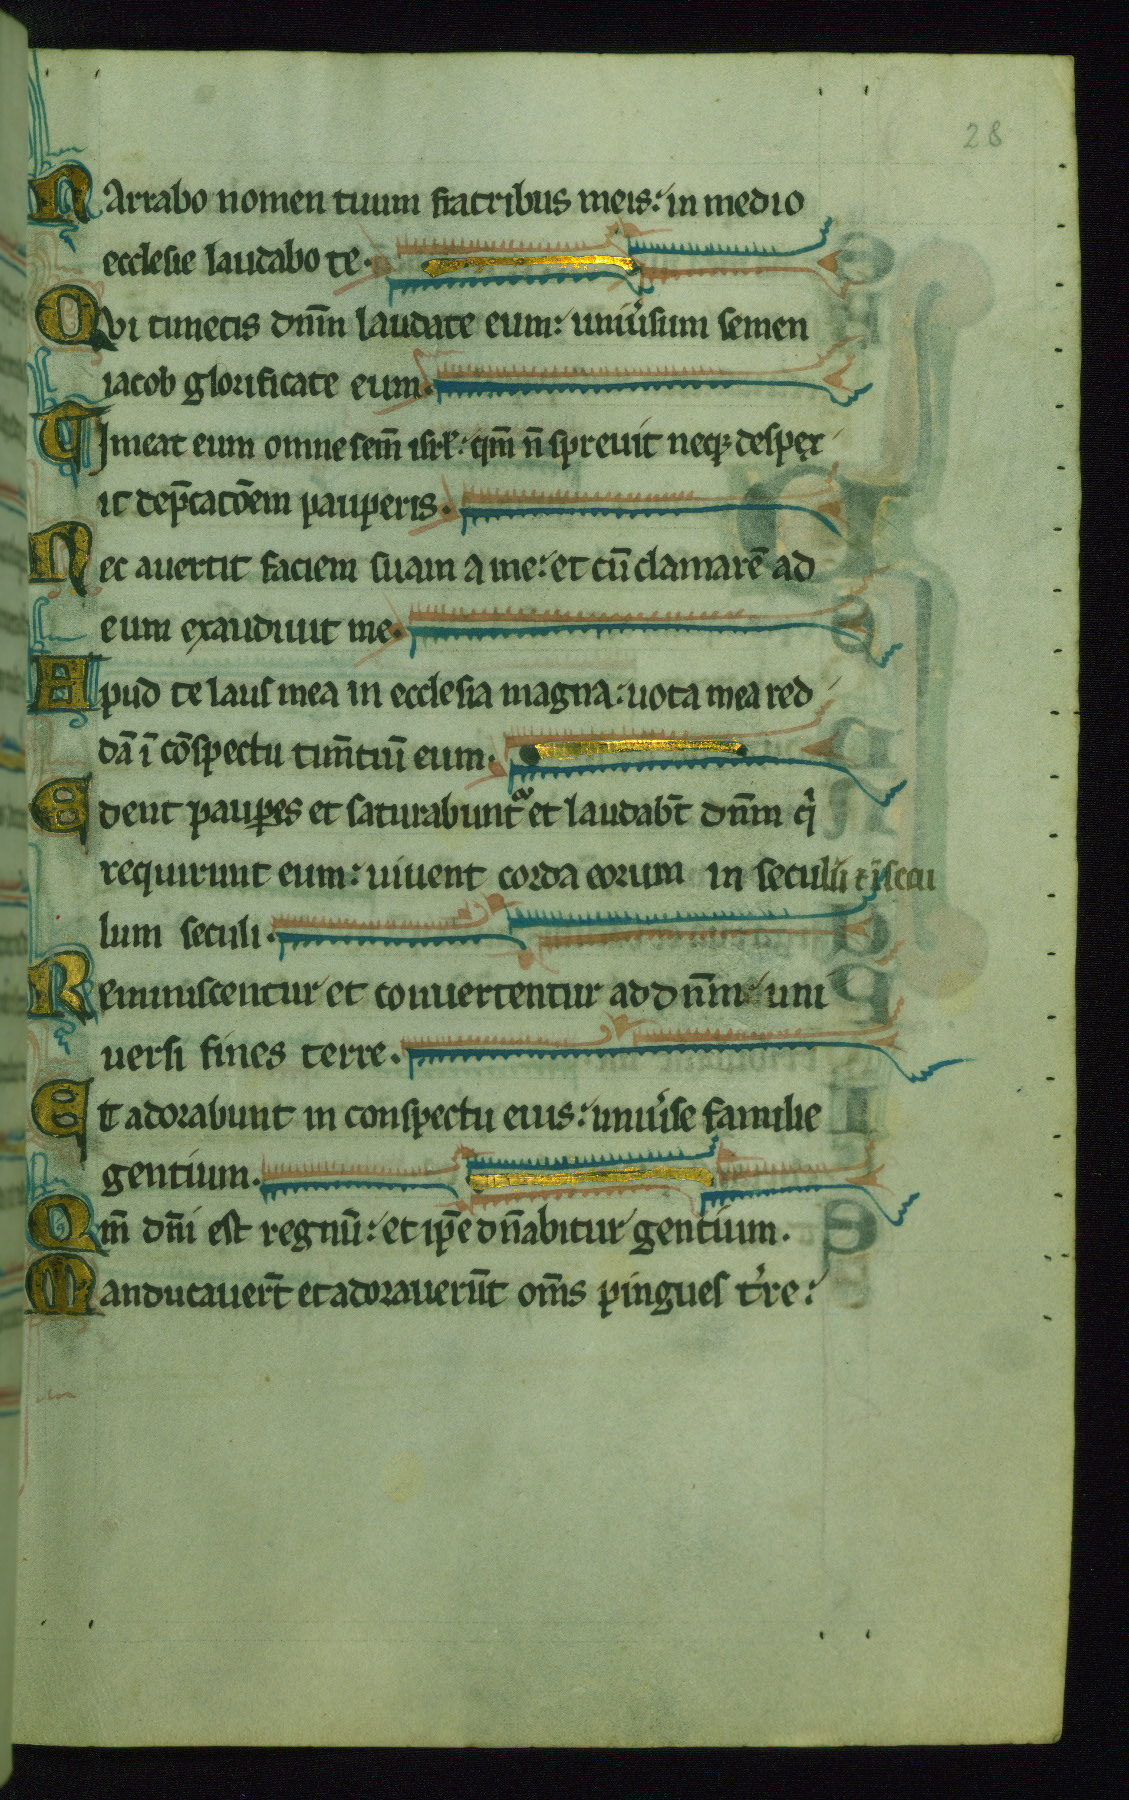 28
NArrabo nomen tuum fratribus meis: in medio
ecclesie laudabo te.
Qvi timetis dn̄m laudate eum: uniu͛sum semen
iacob glorificate eum.
TImeat eum omne sem̄ isrl̄: qm̄ n̄ spreuit neq; despex
it dep̄catōem pauperis.
Nec auertit faciem suam a me: et cū clamarē ad
eum exaudiuit me.
Apud te laus mea in ecclesia magna: uota mea red
dā ī cōspectu tim̄tiū eum.
Edent paup̲es et saturabunt᷑ et laudabt̄ dn̄m qi̇
requirunt eum: uiuent corda eorum in seculū ⁊ ī secu
lum seculi.
Reminiscentur et conuertentur ad dn̄m uni
uersi fines terre.
Et adorabunt in conspectu eius: uniu͛se familie
gentium.
Qm̄ dn̄i est regnū: et ip̄e dn̄abitur gentium.
Manducauert̄ et adorauerūt om̄s pingues t͛re: